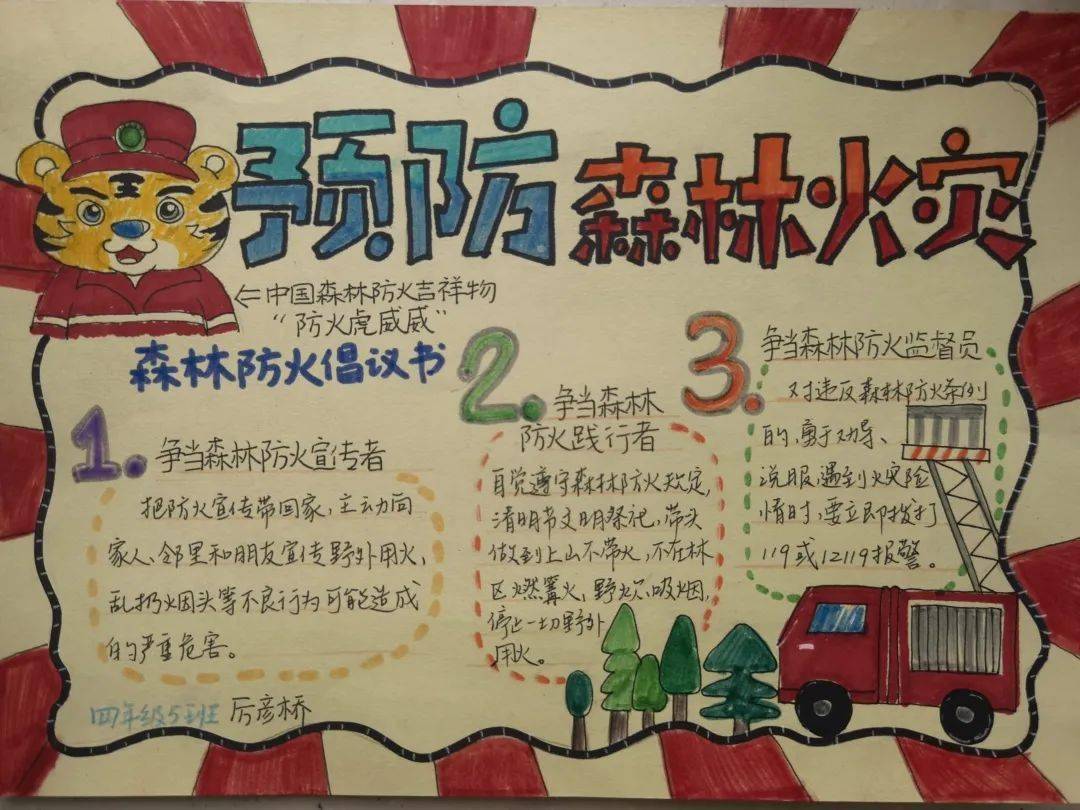 预防森林火灾
⇐中国森林防火吉祥物
“防火虎威威”
森林防火倡议书
1.
争当森林防火宣传者
把防火宣传带回家，主动向
家人、邻里和朋友宣传野外用火，
乱扔烟头等不良行为可能造成
的严重危害。
2.
争当森林
防火践行者
自觉遵守森林防火规定，
清明节文明祭祀，带头
做到上山不带火，不在林
区燃篝火，野炊、吸烟，
停止一切野外
用火。
3.
争当森林防火监督员
对违反森林防火条例
的，勇于劝导、
说服，遇到火灾险
情时，要立即拨打
119或12119报警。
四年级5班 厉彦桥